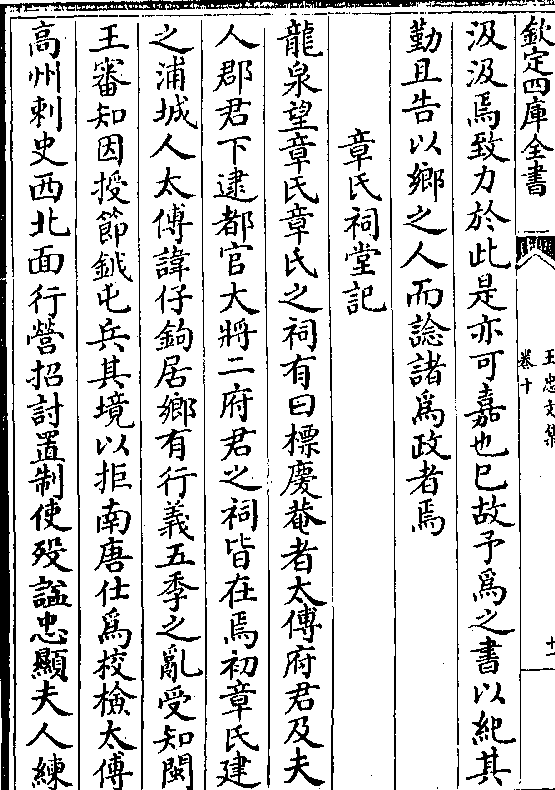 欽定四庫全書
王忠文集
卷十
十一
汲汲焉致力於此是亦可嘉也已故予爲之書以紀其
勤且告以鄉之人而諗諸爲政者焉
章氏祠堂記
龍泉望章氏章氏之祠有曰標慶菴者太傅府君及夫
人郡君下逮都官大將二府君之祠皆在焉初章氏建
之浦城人太傅諱仔鈞居鄉有行義五季之亂受知閩
王審知因授節鉞屯兵其境以拒南唐仕爲校檢太傅
高州刺史西北面行營招討置制使歿諡忠顯夫人練